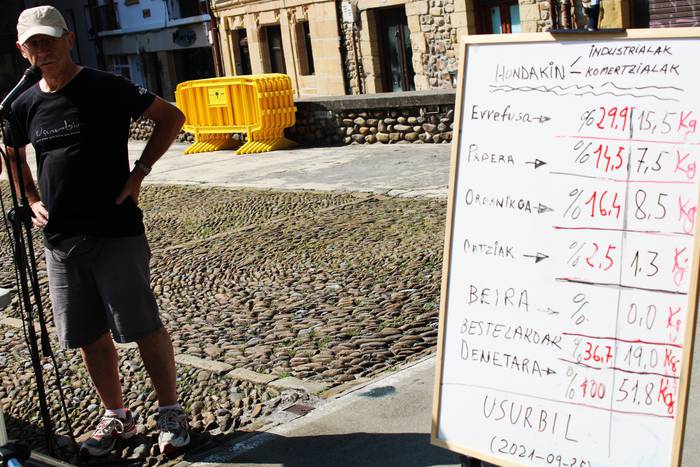 usurbil
HONDAKIN
INDUSTRIALAK
KOMERTZIALAK
Errefusa → %29,9 15,5 Kg
PAPERA → %14,5 7,5 Kg
ORGANIKOA → %16,4 8,5 Kg
ONTZIAK → %2,5 1,3 Kg
BEIRA → % 0,0 Kg
BESTELAKOAK %36,7 19,0 Kg
DENETARA → %100 51,8 Kg
USURBIL
(2021-09-25)